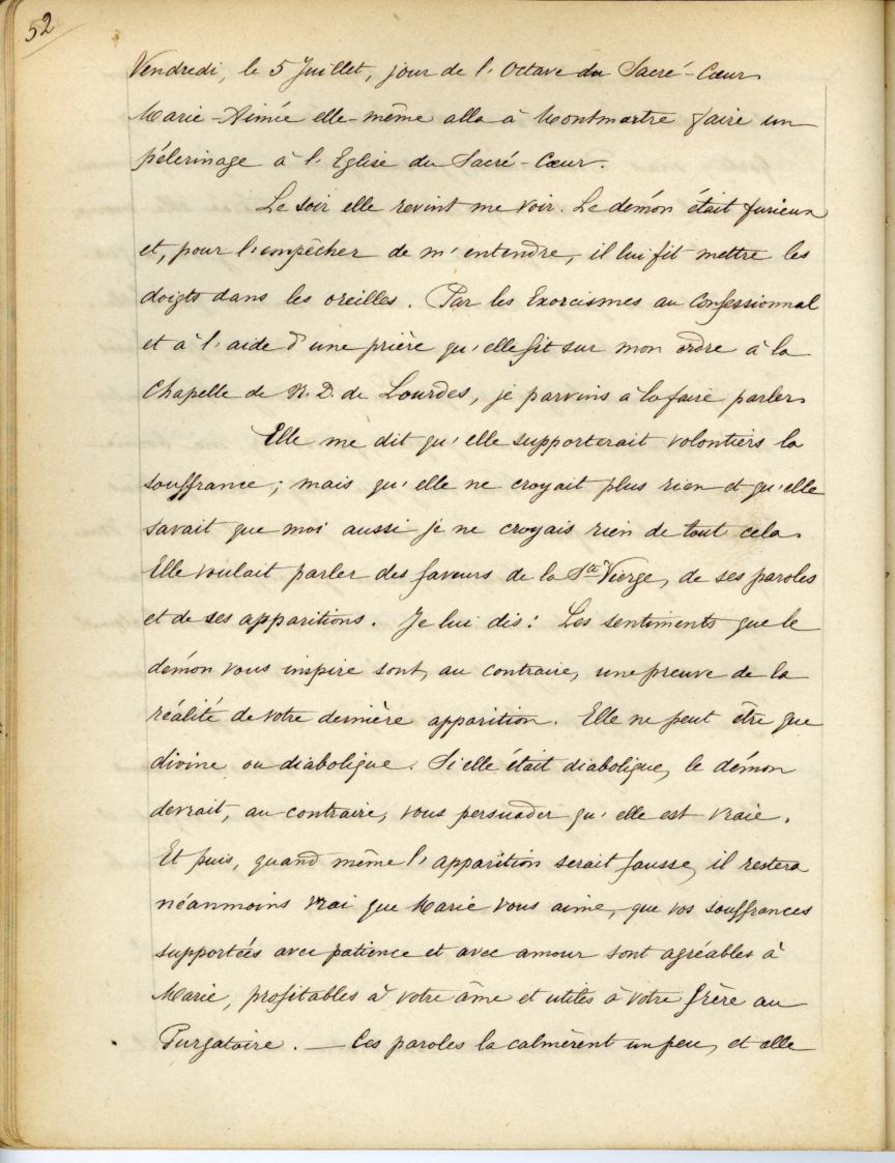 52
Vendredi, le 5 Juillet, jour de l'Octave du Sacré-Cœur
Marie-Aimée elle-même alla à Montmartre faire un
pélerinage à l'Eglise du Sacré-Cœur.
Le soir elle revint me voir. Le démon était furieux
et, pour l'empêcher de m'entendre, il lui fit mettre les
doigts dans les oreilles. Par les Exorcismes au Confessionnal
et à l'aide d'une prière qu'elle fit sur mon ordre à la
Chapelle de N. D. de Lourdes, je parvins à la faire parler.
Elle me dit qu'elle supporterait volontiers la
souffrance ; mais qu'elle ne croyait plus rien et qu'elle
savait que moi aussi je ne croyais rien de tout cela.
Elle voulait parler des faveurs de la Ste Vierge, de ses paroles
et de ses apparitions. Je lui dis : Les sentiments que le
démon vous inspire sont, au contraire, une preuve de la
réalité de votre dernière apparition. Elle ne peut être que
divine ou diabolique. Si elle était diabolique, le démon
devrait, au contraire, vous persuader qu'elle est vraie.
Et puis, quand même l'apparition serait fausse, il restera
néanmoins vrai que Marie vous aime, que vos souffrances
supportées avec patience et avec amour sont agréables à
Marie, profitables à votre âme et utiles à votre frère au
Purgatoire. — Ces paroles la calmèrent un peu, et elle